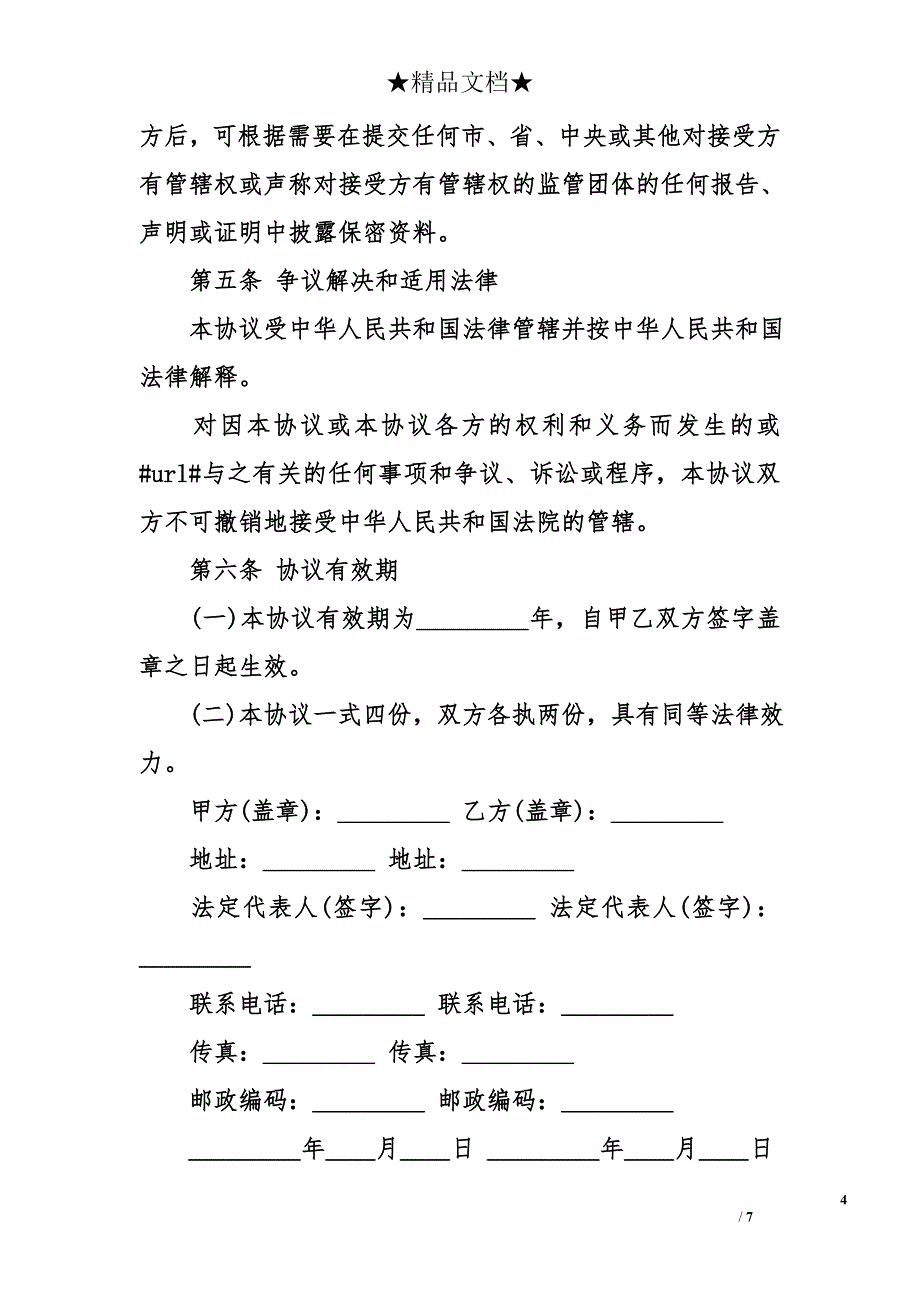 ★精品文档★
方后，可根据需要在提交任何市、省、中央或其他对接受方
有管辖权或声称对接受方有管辖权的监管团体的任何报告、
声明或证明中披露保密资料。
第五条 争议解决和适用法律
本协议受中华人民共和国法律管辖并按中华人民共和国
法律解释。
对因本协议或本协议各方的权利和义务而发生的或
#url#与之有关的任何事项和争议、诉讼或程序，本协议双
方不可撤销地接受中华人民共和国法院的管辖。
第六条 协议有效期
(一)本协议有效期为_________年，自甲乙双方签字盖
章之日起生效。
(二)本协议一式四份，双方各执两份，具有同等法律效
力。
甲方(盖章)：_________ 乙方(盖章)：_________
地址：_________ 地址：_________
法定代表人(签字)：_________ 法定代表人(签字)：
_________
联系电话：_________ 联系电话：_________
传真：_________ 传真：_________
邮政编码：_________ 邮政编码：_________
_________年____月____日 _________年____月____日
4
/ 7